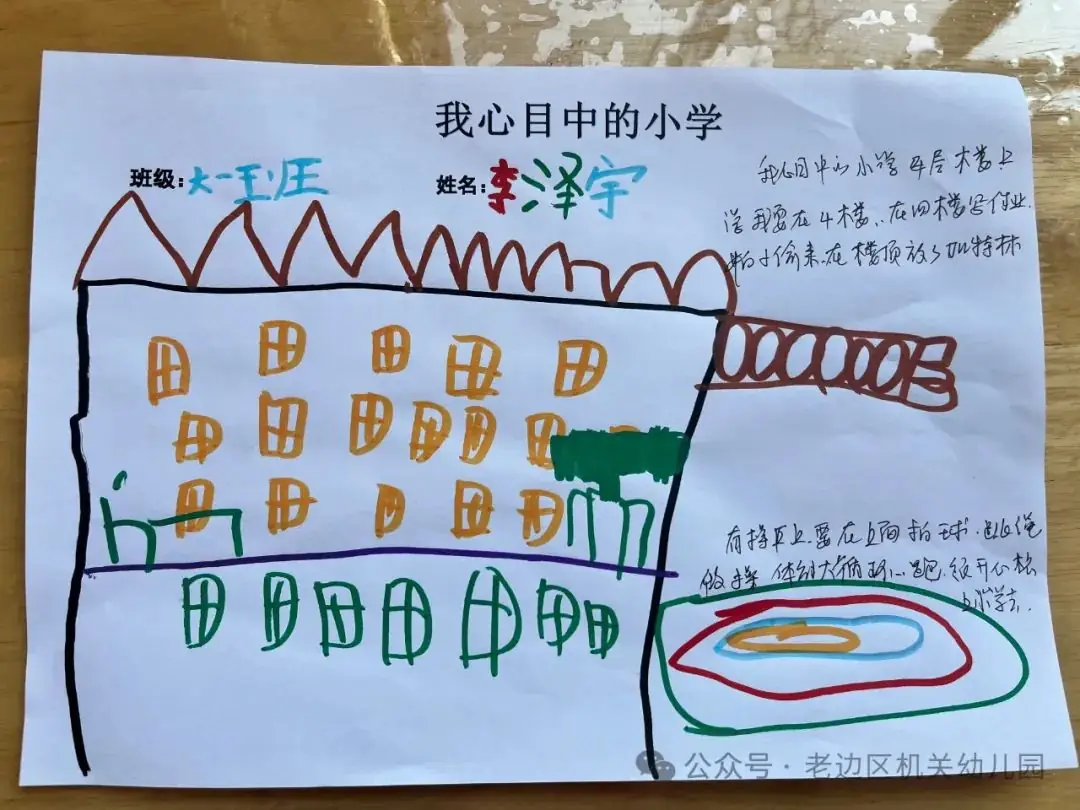 我心目中的小学
班级:大一班王
姓名:李泽宇
我心目中的小学 4层楼上
学 我要在4楼、在四楼写作业
怕小偷来.在楼顶放了加特林
有操 上.要在上面拍球.跳绳
做操
公众号·老边区机关幼儿园